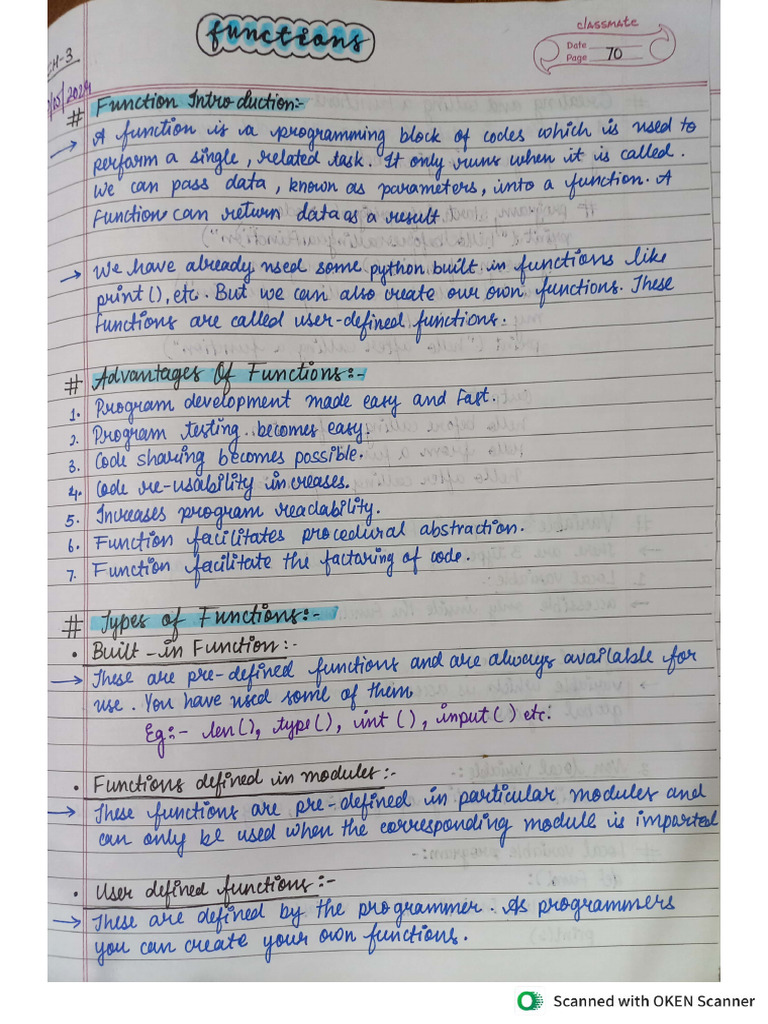 functions
classmate
Date
Page 70
CH-3
# Function Introduction:-
→ A function is a programming block of codes which is used to
perform a single, related task. It only runs when it is called.
We can pass data, known as parameters, into a function. A
Function can return data as a result.
→ We have already used some python built in functions like
print(), etc. But we can also create our own functions. These
functions are called user-defined functions.
# Advantages Of Functions:-
1. Program development made easy and Fast.
2. Program testing becomes easy.
3. Code sharing becomes possible.
4. Code re-usability increases.
5. Increases program readability.
6. Function facilitates procedural abstraction.
7. Function facilitate the factoring of code.
# Types of Functions:-
• Built-in Function:-
→ These are pre-defined functions and are always available for
use. You have used some of them
Eg:- len(), type(), int(), input() etc.
• Functions defined in modules:-
→ These functions are pre-defined in particular modules and
can only be used when the corresponding module is imparted
• User defined functions:-
→ These are defined by the programmer. As programmers
you can create your own functions.
Scanned with OKEN Scanner